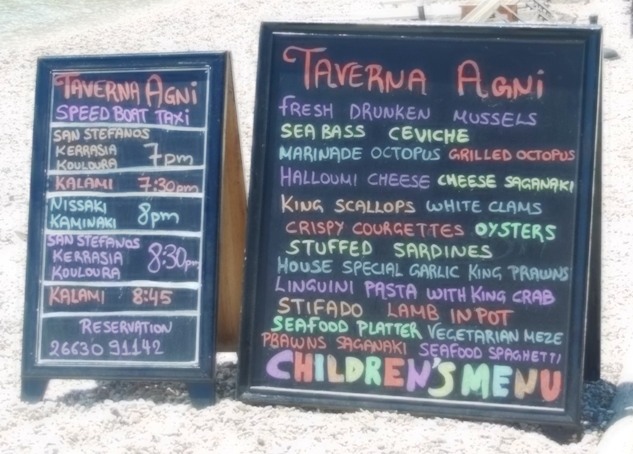 TAVERNA AGNi
SPEED BOAT TAXi
SAN STEFANOS
KERRASIA
KOULOURA 7pm
KALAMI 7:30pm
NISSAKI
KAMINAKI 8pm
SAN STEFANOS
KERRASIA
KOULOURA 8:30pm
KALAMI 8:45
RESERVATION
26630 91142
TAVERNA AGNi
FRESH DRUNKEN MUSSELS
SEA BASS CEVICHE
MARINADE OCTOPUS GRILLED OCTOPUS
HALLOUMI CHEESE CHEESE SAGANAKI
KING SCALLOPS WHITE CLAMS
CRISPY COURGETTES OYSTERS
STUFFED SARDINES
HOUSE SPECIAL GARLIC KING PRAWNS
LINGUINI PASTA WITH KING CRAB
STIFADO LAMB IN POT
SEAFOOD PLATTER VEGETARIAN MEZE
PRAWNS SAGANAKI SEAFOOD SPAGHETTI
CHILDREN'S MENU